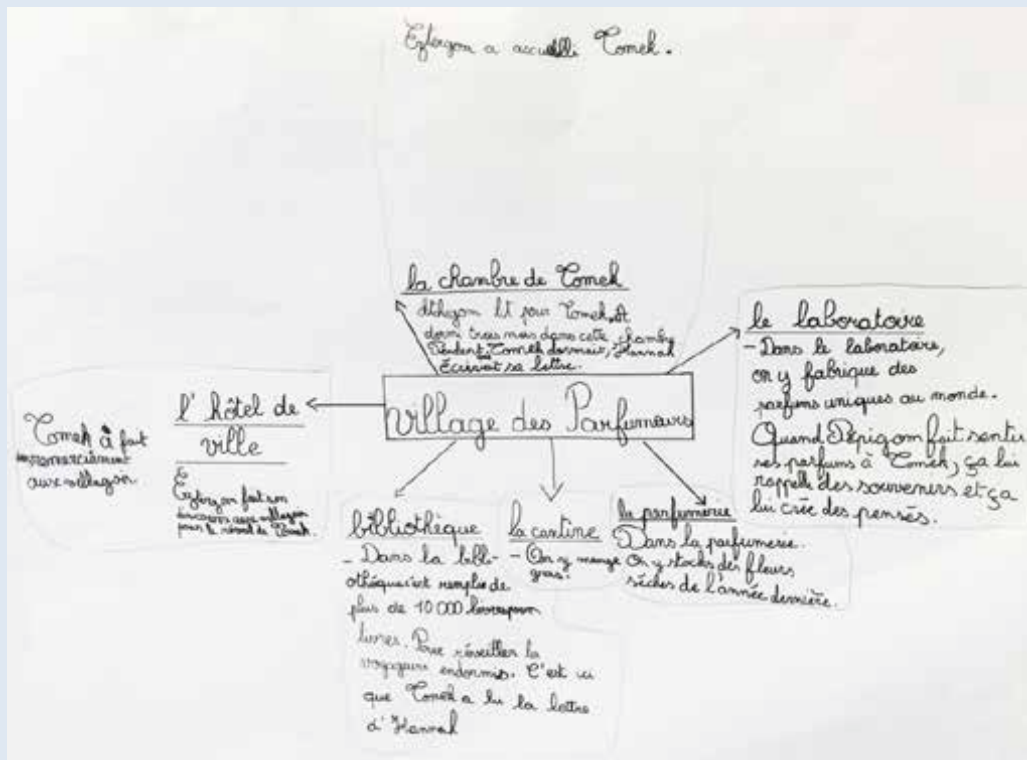 a accueilli Tomek.
la chambre de Tomek
lit pour Tomek
dormi trois mois dans cette chambre
Pendant Tomek dormait, Hannah
Écrivait sa lettre.
le laboratoire
- Dans le laboratoire,
on y fabrique des
parfums uniques au monde.
Quand Pépigom fait sentir
ses parfums à Tomek, ça lui
rappelle des souvenirs et ça
lui crée des pensés.
village des Parfumeurs
l'hôtel de
ville
fait son
discours aux villageon
pour le réveil de Tomek.
Tomek à fait
un remerciement
aux villageon.
bibliothèque
- Dans la bibli-
othèque c'est remplie de
plus de 10 000
livres. Pour réveiller la
voyageurs endormis. C'est ici
que Tomek a lu la lettre
d'Hannah
la cantine
- On y mange
gras.
la parfumerie
Dans la parfumerie.
On y stocks des fleurs
sèches de l'année dernière.